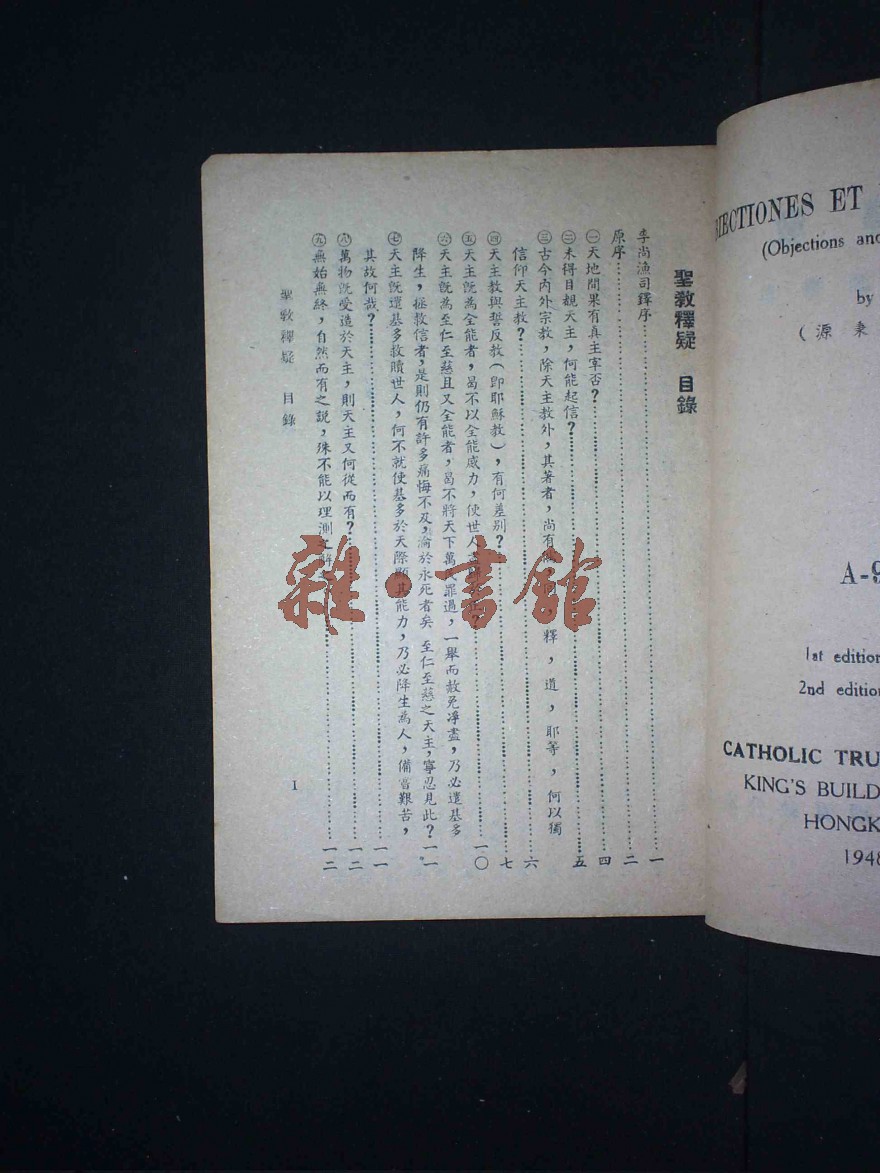 聖教釋疑 目錄
李尚漁司鐸序……一
原序……二
㊀天地間果有真主宰否？……四
㊁未得目覩天主，何能起信？……五
㊂古今內外宗教，除天主教外，其著者，尚有 釋，道，耶等，何以獨
信仰天主教？……六
㊃天主教與誓反教（卽耶穌教），有何差别？……七
㊄天主旣為全能者，曷不以全能威力，使世人……一〇
㊅天主旣為至仁至慈且又全能者，曷不將天下萬 罪過，一舉而赦免凈盡，乃必遣基多
降生，拯救信者，是則仍有許多痛悔不及，淪於永死者矣 至仁至慈之天主，寧忍見此？…一一
㊆天主旣遣基多救贖世人，何不就使基多於天際顯其能力，乃必降生為人，備嘗艱苦，
其故何哉？……一一
㊇萬物旣受造於天主，則天主又何從而有？……一二
㊈無始無終，自然而有之說，殊不能以理測……一二
聖教釋疑 目錄
1
JECTIONES ET
(Objections and
by
（源秉
A-9
1st edition
2nd edition
CATHOLIC TRU
KING'S BUILD
HONGK
1948
雜·書館